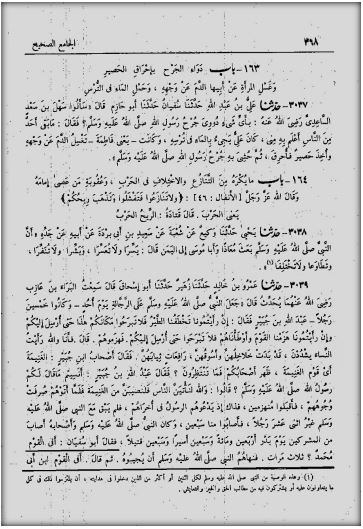 ٣٩٨ الجامع الصحيح
١٦٣- باب دَوَاءِ الجَرْحِ بِإِحْرَاقِ الحَصِيرِ
وَغَسْلِ المَرْأَةِ عَنْ أَبِيهَا الدَّمَ عَنْ وَجْهِهِ ، وَحَمْلِ المَاءِ فى التُّرْسِ
٣٠٣٧- حدثنا عَلِيُّ بنُ عَبْدِ اللهِ حَدَّثَنَا سُفْيَانُ حَدَّثَنَا أبو حَازِمٍ قالَ «سَأَلُوا سَهْلَ بنَ سَعْدٍ
السَّاعِدِىَّ رَضِىَ اللهُ عَنْهُ : بِأَىِّ شَىْءٍ دُووِىَ جُرْحُ رَسُولِ اللهِ صَلَّى اللهُ عَلَيْهِ وَسَلَّمَ؟ فقَالَ : مَا بَقِىَ أَحَدٌ
مِنَ النَّاسِ أَعْلَمُ بِهِ مِنِّى ، كَانَ عَلِىٌّ يَجِىءُ بِالمَاءِ فى تُرْسِهِ ، وَكَانَتْ - يَعْنى فَاطِمَةَ - تَغْسِلُ الدَّمَ عَنْ وَجْهِهِ
وأُخِذَ حَصِيرٌ فَأُحْرِقَ ، ثُمَّ حُشِىَ بِهِ جُرْحُ رَسُولِ اللهِ صَلَّى اللهُ عَلَيْهِ وَسَلَّمَ» .
١٦٤- باب مَا يُكْرَهُ مِنَ التَّنَازُعِ وَالاخْتِلَافِ فى الحَرْبِ ، وَعُقُوبَةِ مَنْ عَصَى إِمَامَهُ
وقَالَ اللهُ عَزَّ وَجَلَّ [الأنفال : ٤٦] : ﴿وَلَا تَنَازَعُوا فَتَفْشَلُوا وَتَذْهَبَ رِيحُكُمْ﴾
يَعْنى الحَرْبَ . قَالَ قَتَادَةُ : الرِّيحُ الحَرْبُ
٣٠٣٨- حدثنا يَحْيَى حَدَّثَنَا وَكِيعٌ عَنْ شُعْبَةَ عَنْ سَعِيدِ بنِ أَبِى بُرْدَةَ عَنْ أَبِيهِ عَنْ جَدِّهِ «أَنَّ
النَّبِىَّ صَلَّى اللهُ عَلَيْهِ وَسَلَّمَ بَعَثَ مُعَاذًا وَأَبَا مُوسَى إِلَى اليَمَنِ قَالَ : يَسِّرَا وَلَا تُعَسِّرَا ، وَبَشِّرَا وَلَا تُنَفِّرَا ،
وَتَطَاوَعَا وَلَا تَخْتَلِفَا»(١).
٣٠٣٩- حدثنا عَمْرُو بنُ خَالِدٍ حَدَّثَنَا زُهَيْرٌ حَدَّثَنَا أبو إِسْحَاقَ قالَ سَمِعْتُ البَرَاءَ بنَ عَازِبٍ
رَضِىَ اللهُ عَنْهُمَا يُحَدِّثُ قَالَ «جَعَلَ النَّبِىُّ صَلَّى اللهُ عَلَيْهِ وَسَلَّمَ عَلَى الرَّجَّالَةِ يَوْمَ أُحُدٍ - وَكَانُوا خَمْسِينَ
رَجُلاً - عَبْدَ اللهِ بنَ جُبَيْرٍ فَقَالَ : إِنْ رَأَيْتُمُونَا تَخْطَفُنَا الطَّيْرُ فَلَا تَبْرَحُوا مَكَانَكُمْ هَذَا حَتَّى أُرْسِلَ إِلَيْكُمْ
وَإِنْ رَأَيْتُمُونَا هَزَمْنَا القَوْمَ وَأَوْطَأْنَاهُمْ فَلَا تَبْرَحُوا حَتَّى أُرْسِلَ إِلَيْكُمْ . فَهَزَمُوهُمْ . قَالَ : فَأَنَا وَاللهِ رَأَيْتُ
النِّسَاءَ يَشْتَدِدْنَ ، قَدْ بَدَتْ خَلَاخِلُهُنَّ وَأَسْوُقُهُنَّ ، رَافِعَاتٍ ثِيَابَهُنَّ . فَقَالَ أَصْحَابُ ابنِ جُبَيْرٍ : الغَنِيمَةَ
أَىْ قَوْمُ الغَنِيمَةَ ، ظَهَرَ أَصْحَابُكُمْ فَمَا تَنْتَظِرُونَ ؟ فَقَالَ عَبْدُ اللهِ بنُ جُبَيْرٍ : أَنَسِيتُمْ مَا قَالَ لَكُمْ
رَسُولُ اللهِ صَلَّى اللهُ عَلَيْهِ وَسَلَّمَ ؟ قَالُوا : وَاللهِ لَنَأْتِيَنَّ النَّاسَ فَلَنُصِيبَنَّ مِنَ الغَنِيمَةِ فَلَمَّا أَتَوْهُمْ صُرِفَتْ
وُجُوهُهُمْ ، فَأَقْبَلُوا مُنْهَزِمِينَ ، فَذَاكَ إِذْ يَدْعُوهُمُ الرَّسُولُ فى أُخْرَاهُمْ ، فَلَمْ يَبْقَ مَعَ النَّبِىِّ صَلَّى اللهُ عَلَيْهِ
وَسَلَّمَ غَيْرُ اثْنَىْ عَشَرَ رَجُلاً ، فَأَصَابُوا مِنَّا سَبْعِينَ ، وَكَانَ النَّبِىُّ صَلَّى اللهُ عَلَيْهِ وَسَلَّمَ وَأَصْحَابُهُ أَصَابَ
مِنَ المشْرِكِينَ يَوْمَ بَدْرٍ أَرْبَعِينَ وَمِائَةً وَسَبْعِينَ أَسِيرًا وَسَبْعِينَ قَتِيلاً ، فَقَالَ أَبُو سُفْيَانَ : أَفى القَوْمِ
مُحَمَّدٌ ؟ ثَلَاثَ مَرَّاتٍ . فَنَهَاهُمُ النَّبِىُّ صَلَّى اللهُ عَلَيْهِ وَسَلَّمَ أَنْ يُجِيبُوهُ . ثُمَّ قَالَ : أَفى القَوْمِ ابنُ أَبِى
(١) وهذه الوصية من النبى صلى الله عليه وسلم لكل اثنين أو أكثر من الذين دخلوا فى هدايته ، أن يلتزموا ذلك فى كل
ما يتعاونون عليه أو يشتركون فيه من مطالب الحق والخير، والتعايش .